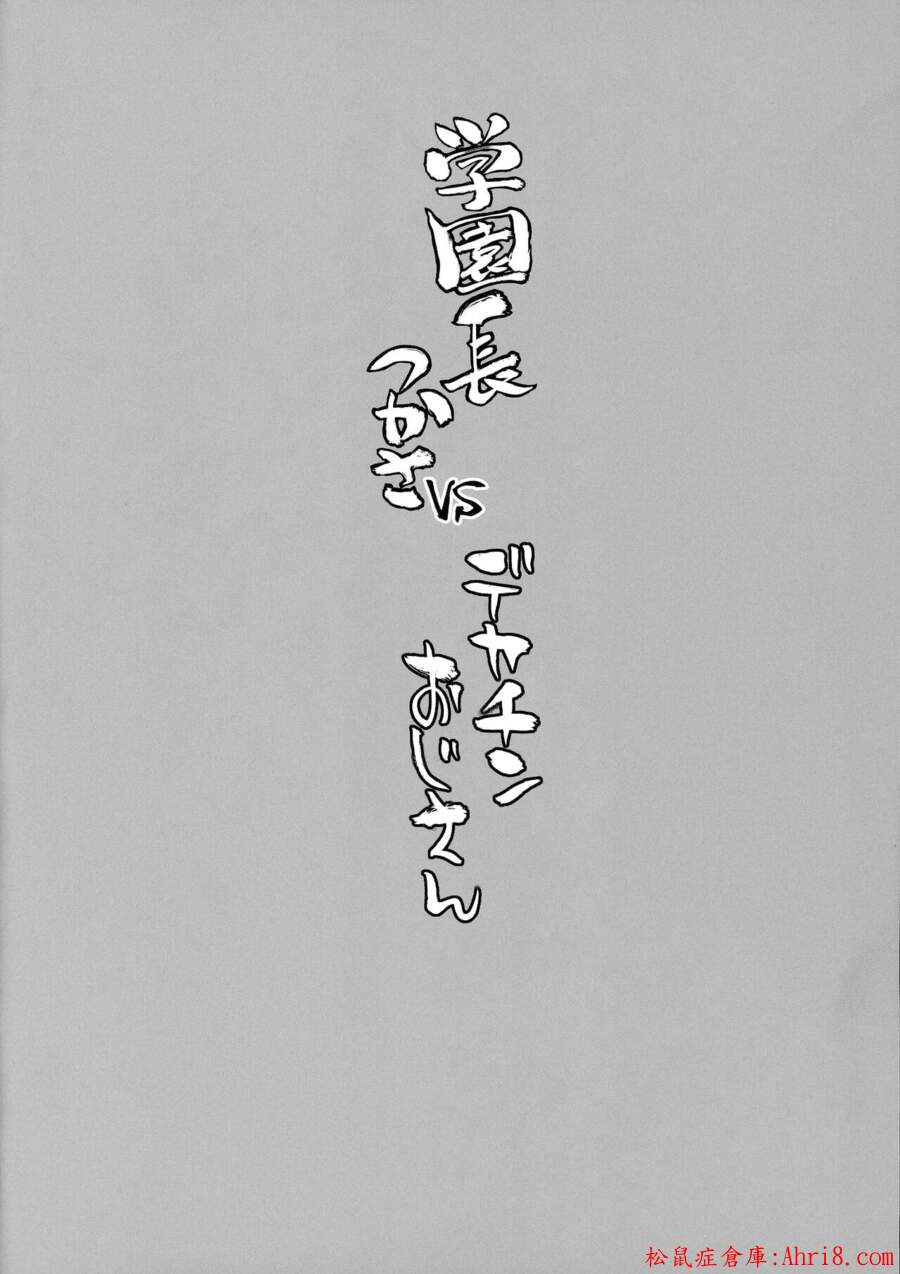 学園長
つかさ
VS
デカチン
おじさん
松鼠症倉庫:Ahri8.com